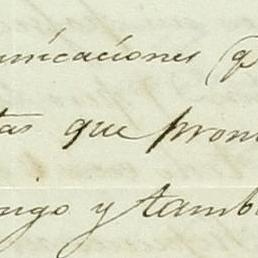 unicaciones (q
tas que prom
ngo y tamb